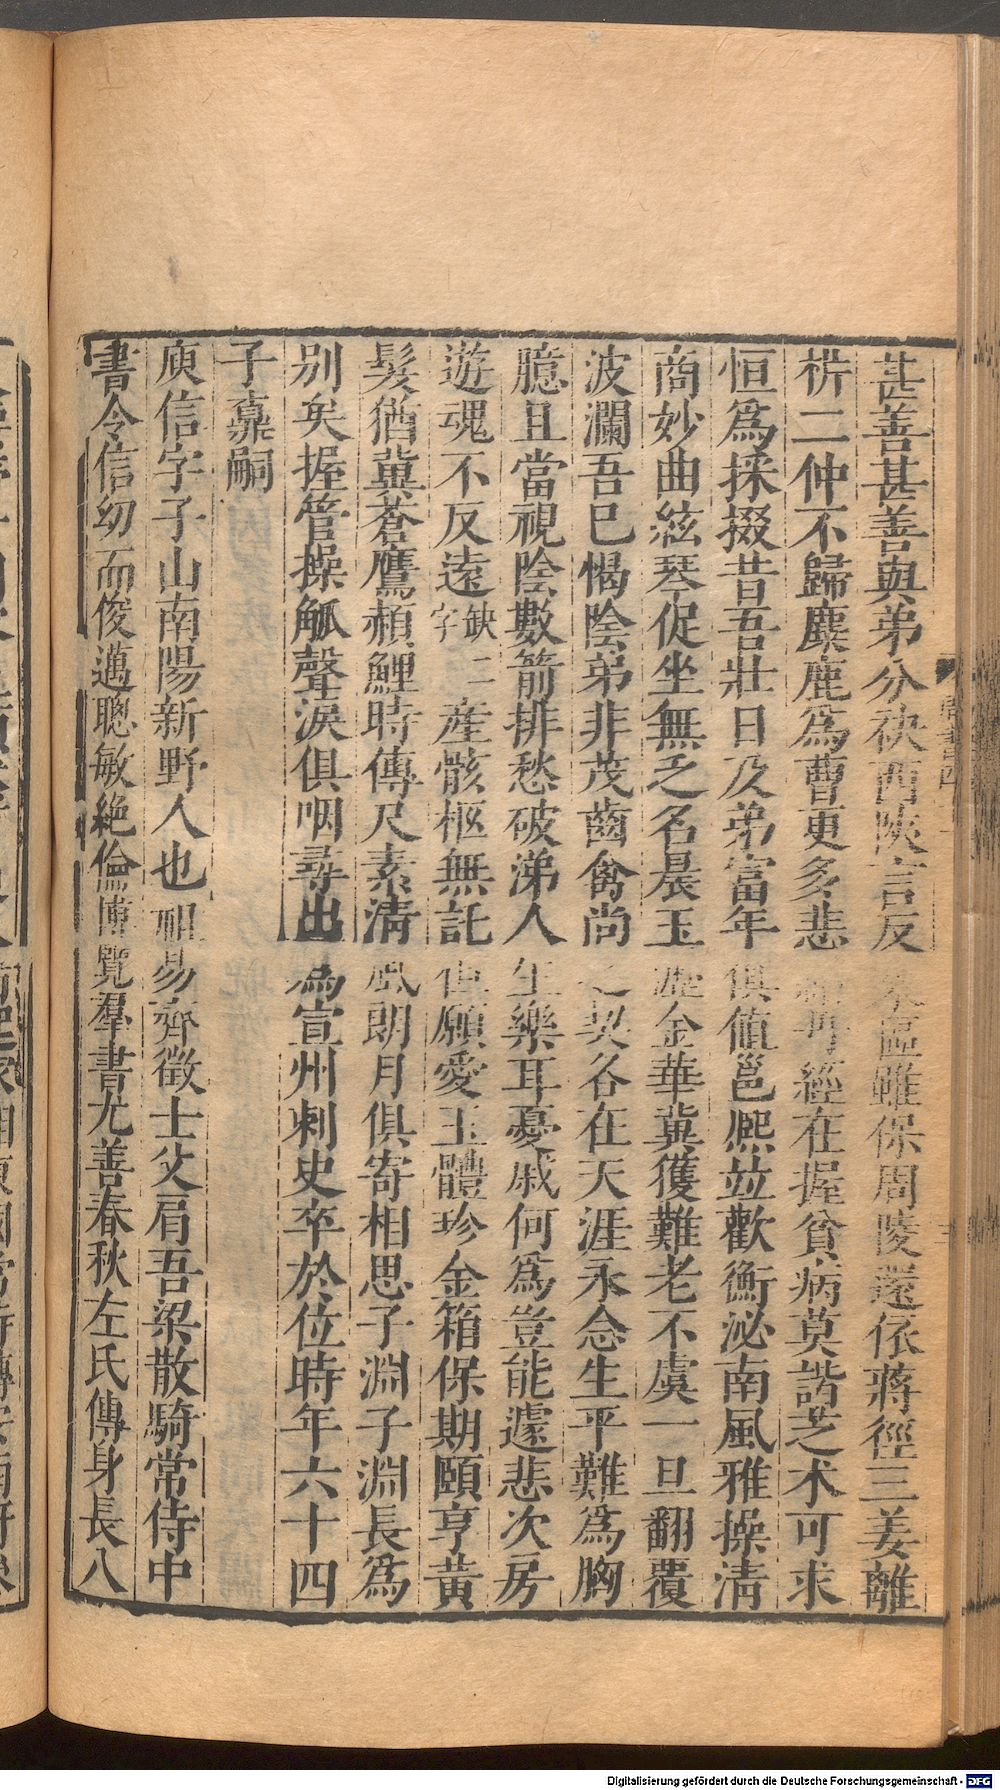 甚善甚善與弟分袂西陝言反區雖保周陵還依蔣徑三姜離
析二仲不歸麋鹿爲曹更多悲經在握貧病莫諧芝术可求
恒爲採掇昔吾壯日及弟富年俱値邕熙竝歡衡泌南風雅操淸
商妙曲絃琴促坐無乏名晨玉瀝金華冀獲難老不虞一旦翻覆
波瀾吾已愒陰弟非茂齒禽尚之契各在天涯永念生平難爲胸
臆且當視陰數箭排愁破涕人生樂耳憂戚何爲豈能遽悲次房
遊魂不反遠缺二字産骸柩無託但願愛玉體珍金箱保期頤享黃
髮猶冀蒼鷹頳鯉時傳尺素淸風朗月俱寄相思子淵子淵長爲
別矣握管操觚聲淚俱咽尋出爲宣州刺史卒於位時年六十四
子鼒嗣
庾信字子山南陽新野人也祖易齊徵士父肩吾梁散騎常侍中
書令信幼而俊邁聰敏絶倫博覽羣書尤善春秋左氏傳身長八
Digitalisierung gefördert durch die Deutsche Forschungsgemeinschaft - DFG